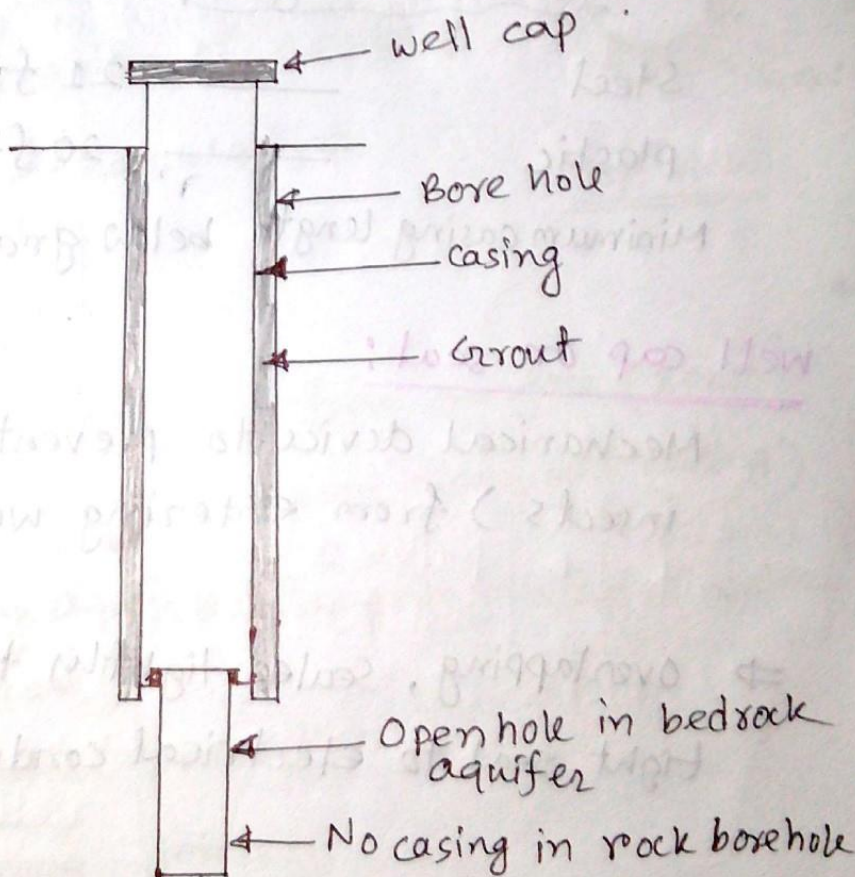 well cap
Bore hole
casing
Grout
Open hole in bedrock
aquifer
No casing in rock borehole